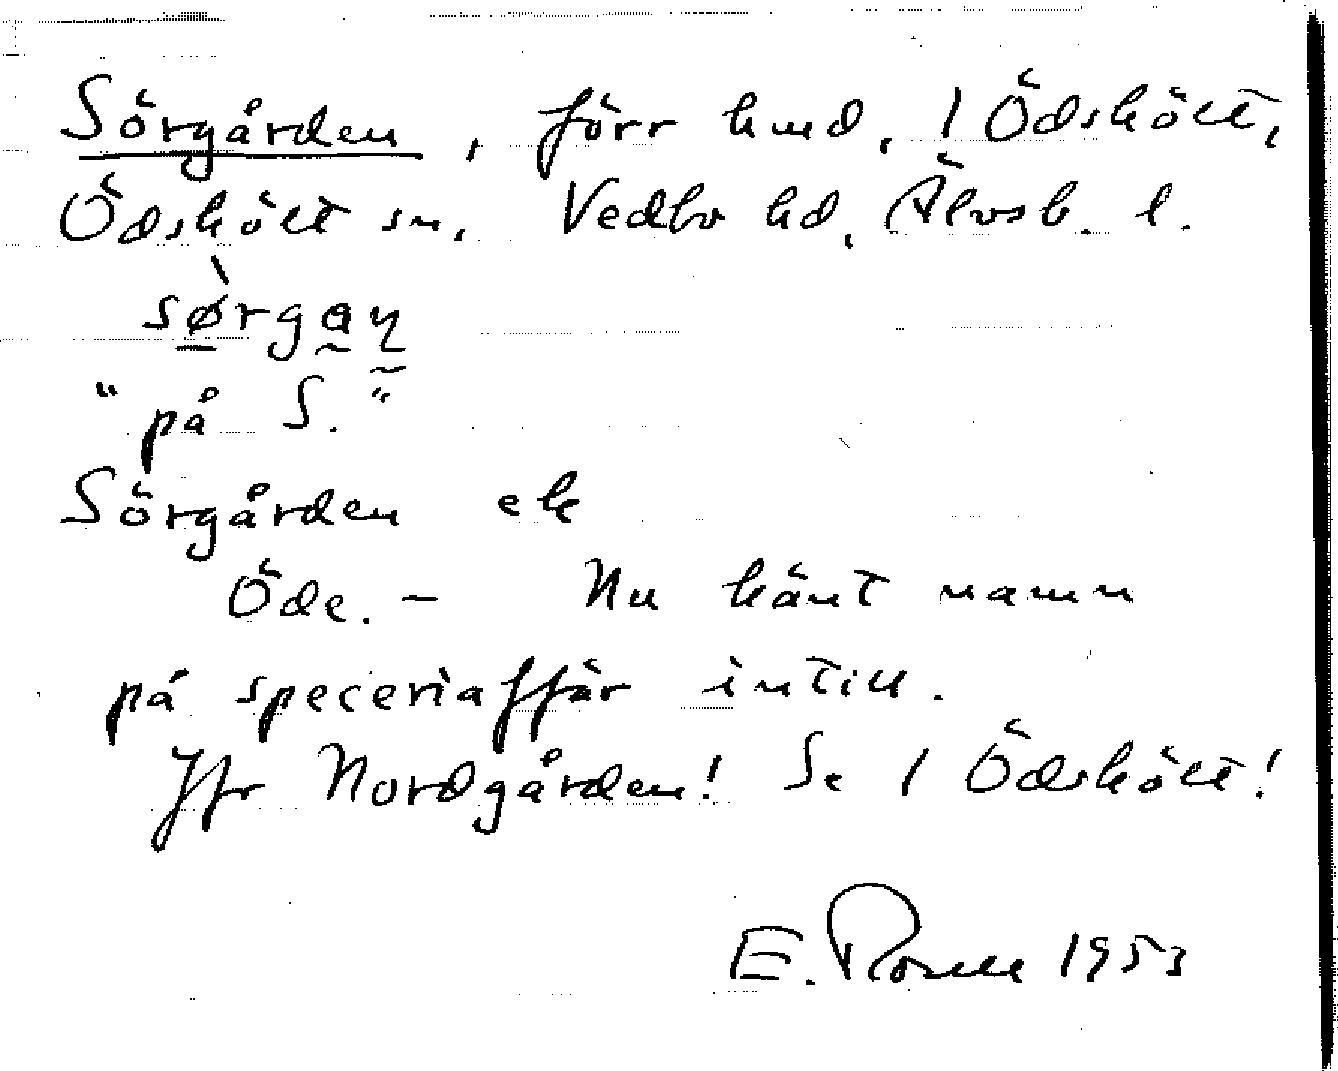 Sörgården, förr hmd, 1 Ödskölt,
Ödskölt sn, Vedbo hd, Älvsb. l.
sørgan
"på S."
Sörgården ek
Öde. - Nu känt namn
på speceriaffär intill.
Jfr Nordgården! Se 1 Ödskölt!
E. Rosell 1953